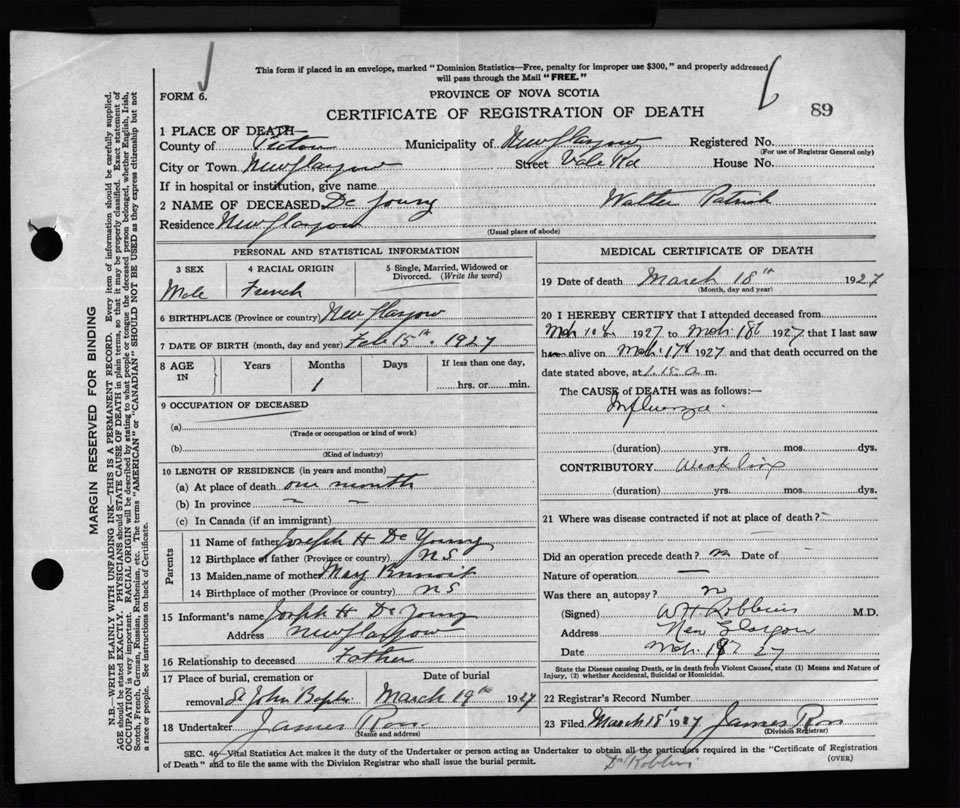 This form if placed in an envelope, marked "Dominion Statistics—Free, penalty for improper use $300," and properly addressed
will pass through the Mail "FREE."
FORM 6.
PROVINCE OF NOVA SCOTIA
CERTIFICATE OF REGISTRATION OF DEATH
89
1 PLACE OF DEATH—
County of Pictou Municipality of New Glasgow Registered No.
(For use of Registrar General only)
City or Town New Glasgow Street Vale Rd House No.
If in hospital or institution, give name
2 NAME OF DECEASED De Young Walter Patrick
Residence New Glasgow
(Usual place of abode)
PERSONAL AND STATISTICAL INFORMATION
3 SEX
Male
4 RACIAL ORIGIN
French
5 Single, Married, Widowed or
Divorced. (Write the word)
6 BIRTHPLACE (Province or country) New Glasgow
7 DATE OF BIRTH (month, day and year) Feb 15th. 1927
8 AGE
IN
Years
Months
1
Days
If less than one day,
hrs. or min.
9 OCCUPATION OF DECEASED
(a)
(Trade or occupation or kind of work)
(b)
(Kind of industry)
10 LENGTH OF RESIDENCE (in years and months)
(a) At place of death one month
(b) In province – –
(c) In Canada (if an immigrant)
Parents
11 Name of father Joseph H De Young
12 Birthplace of father (Province or country) N S
13 Maiden name of mother May
14 Birthplace of mother (Province or country) N S
15 Informant's name Joseph H De Young
Address New Glasgow
16 Relationship to deceased Father
17 Place of burial, cremation or
removal St John
Date of burial
March 19th 1927
18 Undertaker James Ross
(Name and address)
MEDICAL CERTIFICATE OF DEATH
19 Date of death March 18th 1927
(Month, day and year)
20 I HEREBY CERTIFY that I attended deceased from
Mch 10th 1927 to Mch 18th 1927 that I last saw
h alive on Mch 17th 1927 and that death occurred on the
date stated above, at 1.15 a m.
The CAUSE of DEATH was as follows:—
Influenza
(duration) yrs. mos. dys.
CONTRIBUTORY Weakling
(duration) yrs. mos. dys.
21 Where was disease contracted if not at place of death? –
Did an operation precede death? no Date of –
Nature of operation —
Was there an autopsy? no
(Signed) W H Robbins M.D.
Address New Glasgow
Date Mch 18th 27
State the Disease causing Death, or in death from Violent Causes, state (1) Means and Nature of
Injury, (2) whether Accidental, Suicidal or Homicidal.
22 Registrar's Record Number
23 Filed March 18th 1927 James Ross
(Division Registrar)
SEC. 46—Vital Statistics Act makes it the duty of the Undertaker or person acting as Undertaker to obtain all the particulars required in the "Certificate of Registration
of Death" and to file the same with the Division Registrar who shall issue the burial permit.
(OVER)
Dr Robbins
MARGIN RESERVED FOR BINDING
N.B.—WRITE PLAINLY WITH UNFADING INK—THIS IS A PERMANENT RECORD. Every item of information should be carefully supplied.
AGE should be stated EXACTLY. PHYSICIANS should STATE CAUSE OF DEATH in plain terms, so that it may be properly classified. Exact statement of
OCCUPATION is very important. RACIAL ORIGIN will be described by stating to what people or tongue the deceased person belonged, whether English, Irish,
Scotch, French, German, Russian, Ruthenian, etc. The terms "AMERICAN" or "CANADIAN" SHOULD NOT BE USED as they express citizenship but not
a race or people. See instructions on back of Certificate.